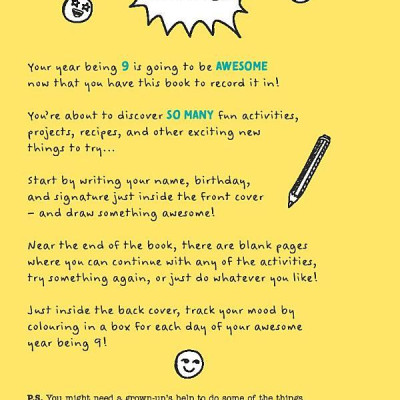 Your year being 9 is going to be AWESOME
now that you have this book to record it in!
You're about to discover SO MANY fun activities,
projects, recipes, and other exciting new
things to try...
Start by writing your name, birthday,
and signature just inside the front cover
– and draw something awesome!
Near the end of the book, there are blank pages
where you can continue with any of the activities,
try something again, or just do whatever you like!
Just inside the back cover, track your mood by
colouring in a box for each day of your awesome
year being 9!
P.S. You might need a grown-up's help to do some of the things